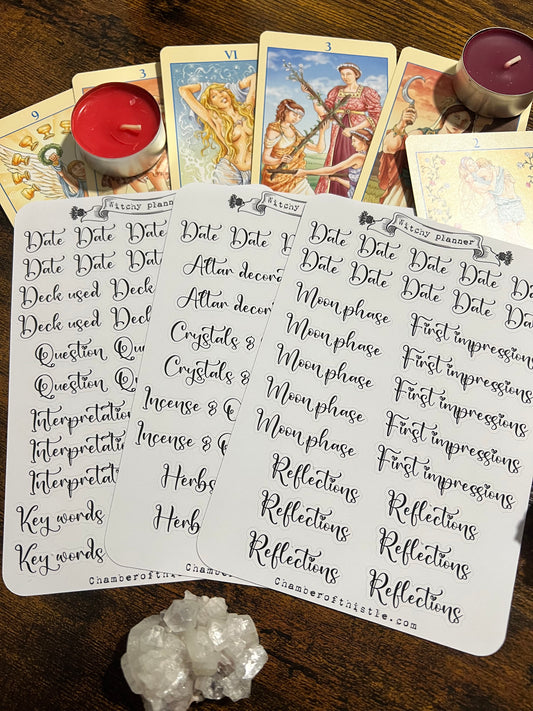 9
3
VI
3
2
Witchy planner
Date Date Date
Date Date Date
Deck used Deck
Deck used Deck
Question Qu
Question Qu
Interpretation
Interpretat
Interpretat
Key words
Key words
Chamberofthistle.c
Witchy
Date Date D
Altar decora
Altar decor
Crystals &
Crystals &
Incense &
Incense &
Herbs
Herb
Witchy planner
Date Date Date Date Da
Date Date Date Date Dat
Moon phase
Moon phase
Moon phase
Moon phase
Moon phase
First impressions
First impressions
First impressions
First impressions
First impressions
Reflections
Reflections
Reflections
Reflections
Reflections
Reflections
Chamberofthistle.com